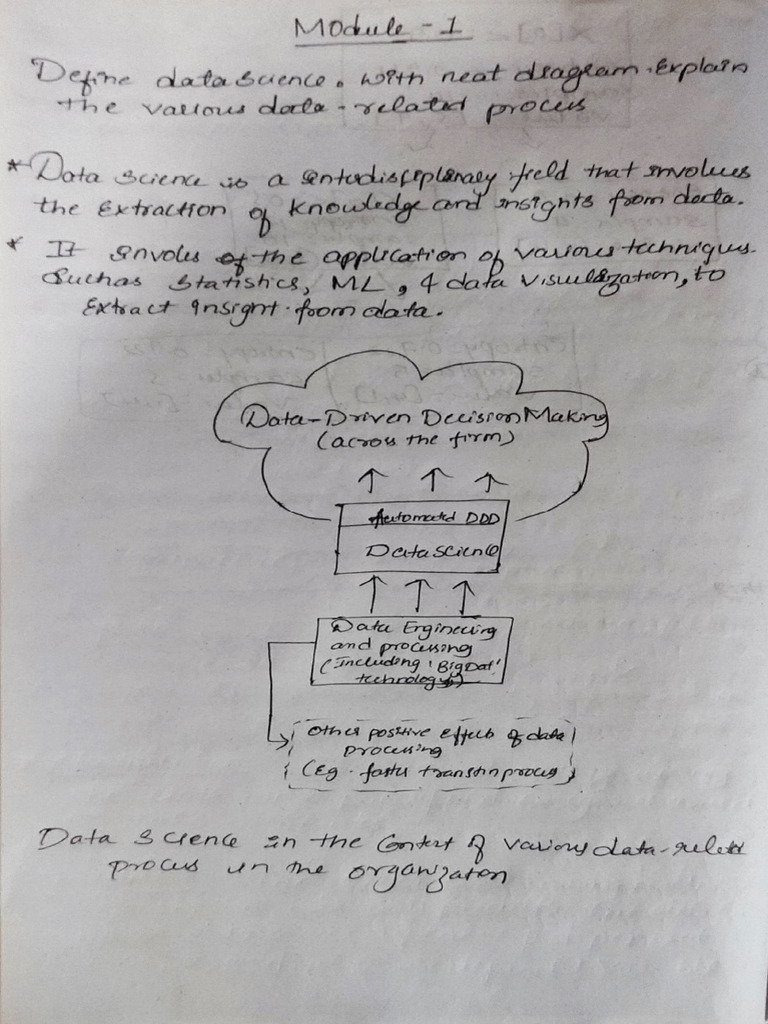 Module - 1
Define data science. with neat diagram. Explain
the various data-related process
* Data science is a interdisciplinary field that involves
the Extraction of knowledge and insights from data.
* It involes of the application of various techniques.
Such as statistics, ML, & data visualization, to
Extract insight from data.
Data-Driven Decision Making
(across the firm)
Automated DDD
Data science
Data Engineering
and processing
(Including 'Big Dat'
technology)
other positive effects of data
processing
(Eg. faster transtin proces)
Data Science in the Context of various data-relatd
process in the organizaton